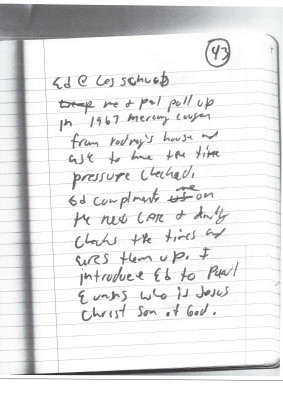 43
Ed @ Les Schwab
me & pal pull up
in 1967 mercury cougar
from rodney's house and
ask to have the tire
pressure checked.
Ed compliments me on
the new car & kindly
checks the tires and
airs them up. I
introduce Ed to Paul
Evans who is Jesus
Christ son of God.